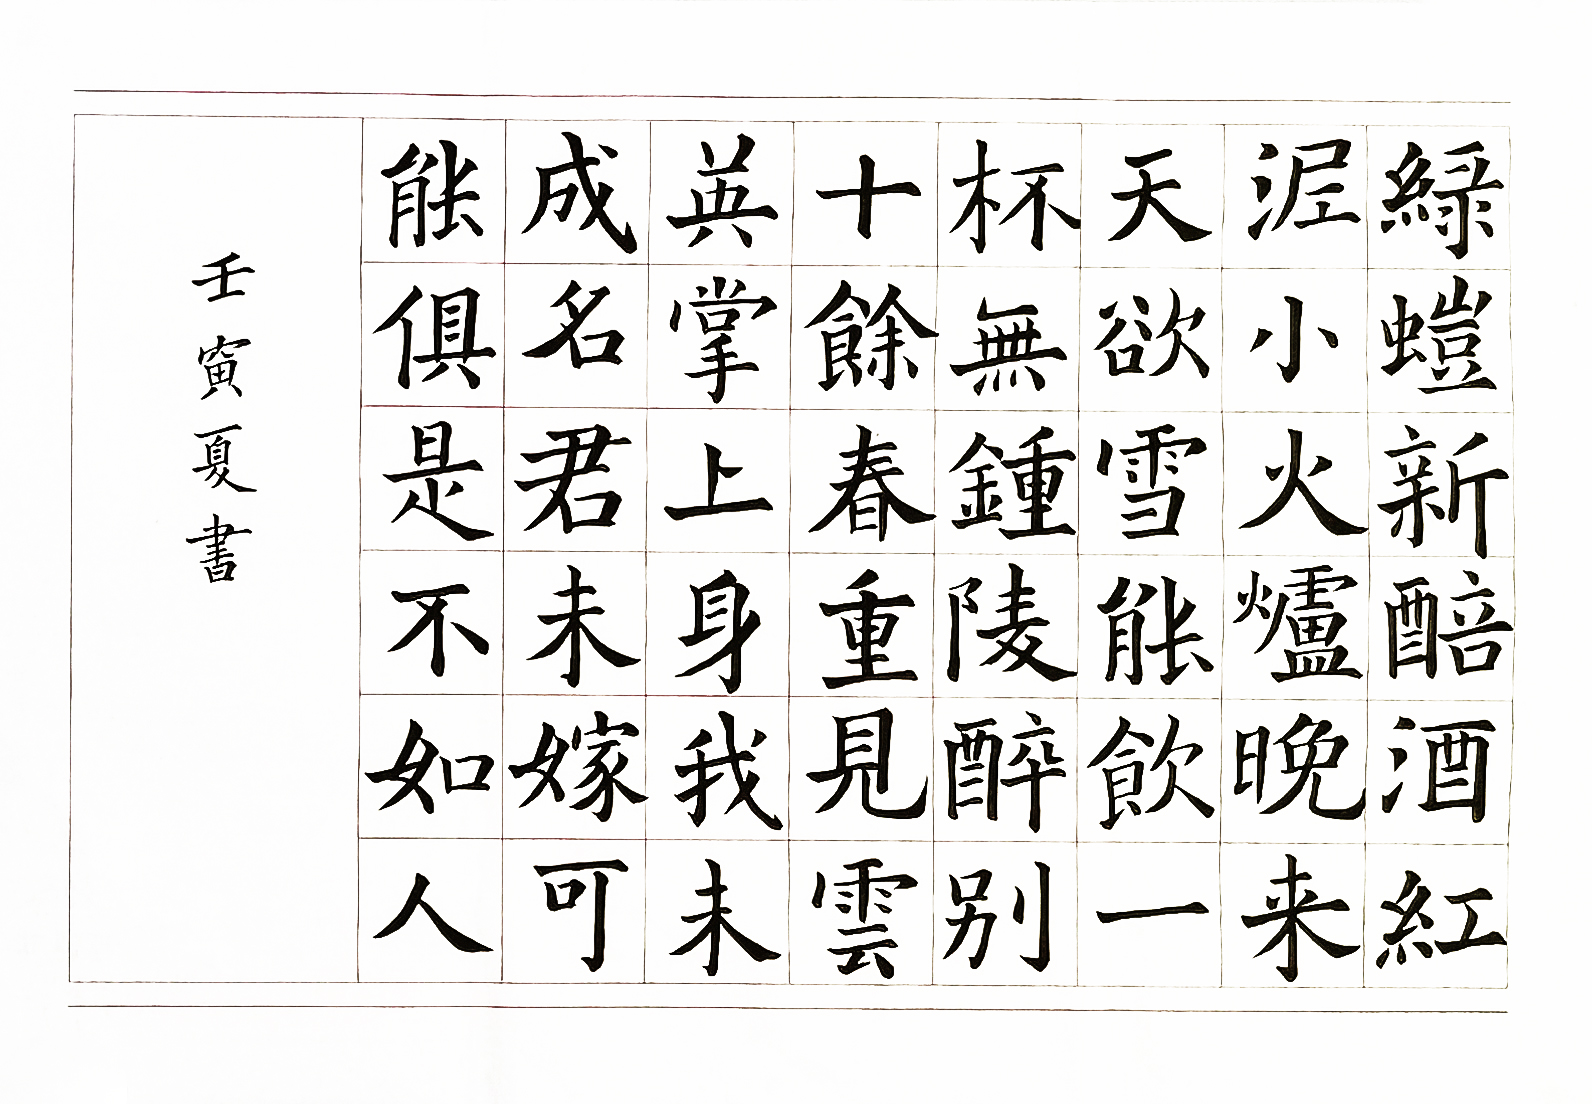 綠螘新醅酒紅
泥小火爐晚来
天欲雪能飲一
杯無鍾陵醉别
十餘春重見雲
英掌上身我未
成名君未嫁可
能俱是不如人
壬寅夏書